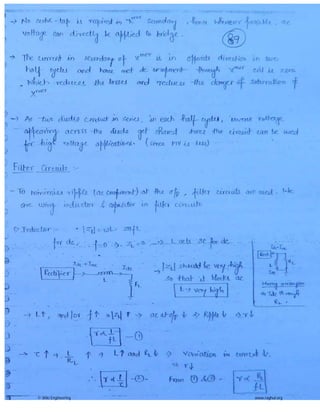 → No centre-tap is required in Xmer secondary, hence wherever possible, ac
voltage can directly be applied to bridge.
87
→ The current in secondary of xmer is in opposite direction in two
half cycles and hence net dc component through xmer coil is zero
, which reduces the losses and reduces the danger of saturation of
xmer
→ As two diodes conduct in series, in each half-cycles, inverse voltage
appearing across the diode get shared hence the circuit can be used
for high voltage applications. (since PIV is less)
Filter Circuits :-
- To minimize ripple (ac component) at the o/p, filter circuits are used. We
are using inductor & capacitor in filter circuits.
① Inductor :- • |ZL| = ωL = 2πfL
for dc, f=0 → ZL=0 → L acts sc for dc
Rectifier
L
RL
→ |ZL| should be very high
so that it blocks ac
L → very high
→ L↑, and/or f↑ → |ZL|↑ → ac at o/p ↓ → Ripple ↓ → r↓
r ∝ 1/fL — ①
→ τ↑ → L/RL ↑ → L↑ and RL↓ → variation in current ↓.
→ r↓
∴ r ∝ 1/τ — ② — From ① & ② - r ∝ RL/fL
© Wiki Engineering
www.raghul.org